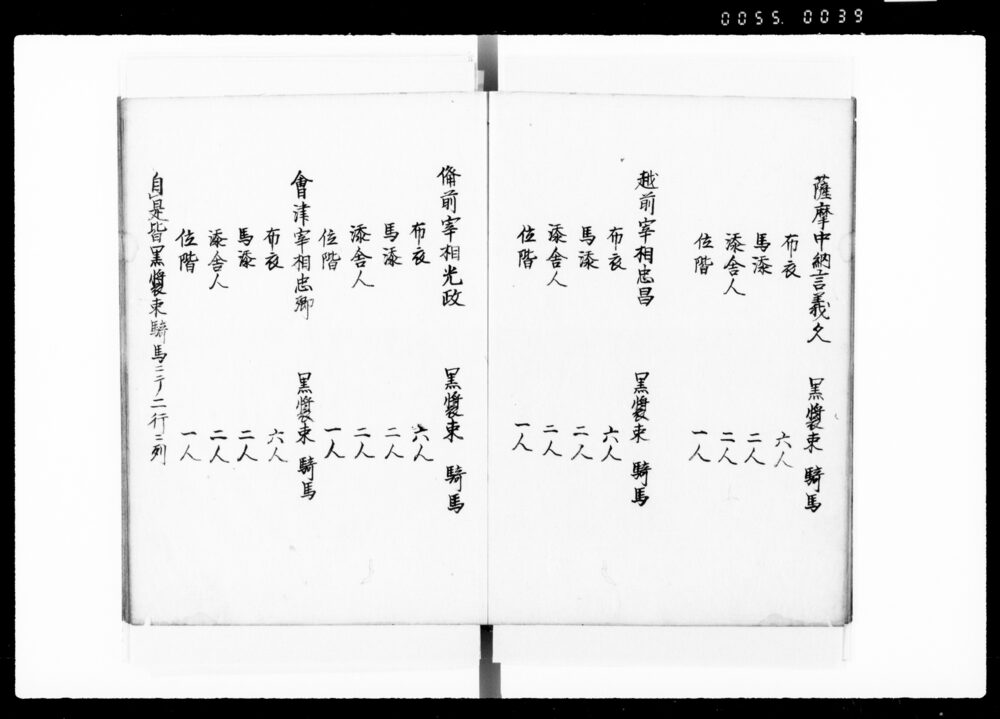 0055. 0039
薩摩中納言義久 黒裝束 騎馬
布衣 六人
馬添 二人
添舎人 二人
位階 一人
越前宰相忠昌 黒裝束 騎馬
布衣 六人
馬添 二人
添舎人 二人
位階 一人
備前宰相光政 黒裝束 騎馬
布衣 六人
馬添 二人
添舎人 二人
位階 一人
會津宰相忠卿 黒裝束 騎馬
布衣 六人
馬添 二人
添舎人 二人
位階 一人
自是皆黒裝束騎馬ニテ二行ニ列